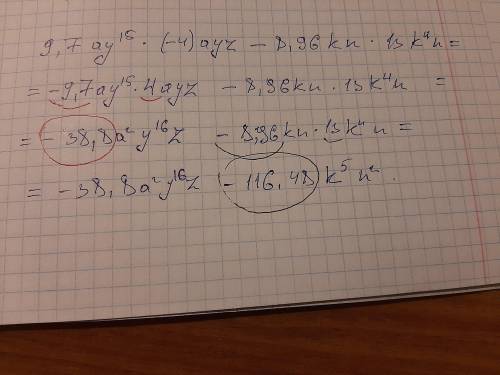 9,7ay¹⁵ · (-4)ayz - 8,96kn · 13k⁴n =
= -9,7ay¹⁵ · 4ayz - 8,96kn · 13k⁴n =
= -38,8a²y¹⁶z - 8,96kn · 13k⁴n =
= -38,8a²y¹⁶z - 116,48k⁵n².